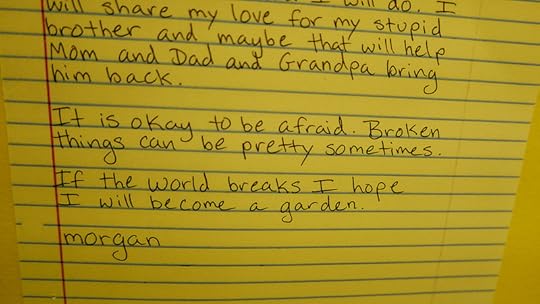 I will do. I
will share my love for my stupid
brother and maybe that will help
Mom and Dad and Grandpa bring
him back.
It is okay to be afraid. Broken
things can be pretty sometimes.
If the world breaks I hope
I will become a garden.
morgan